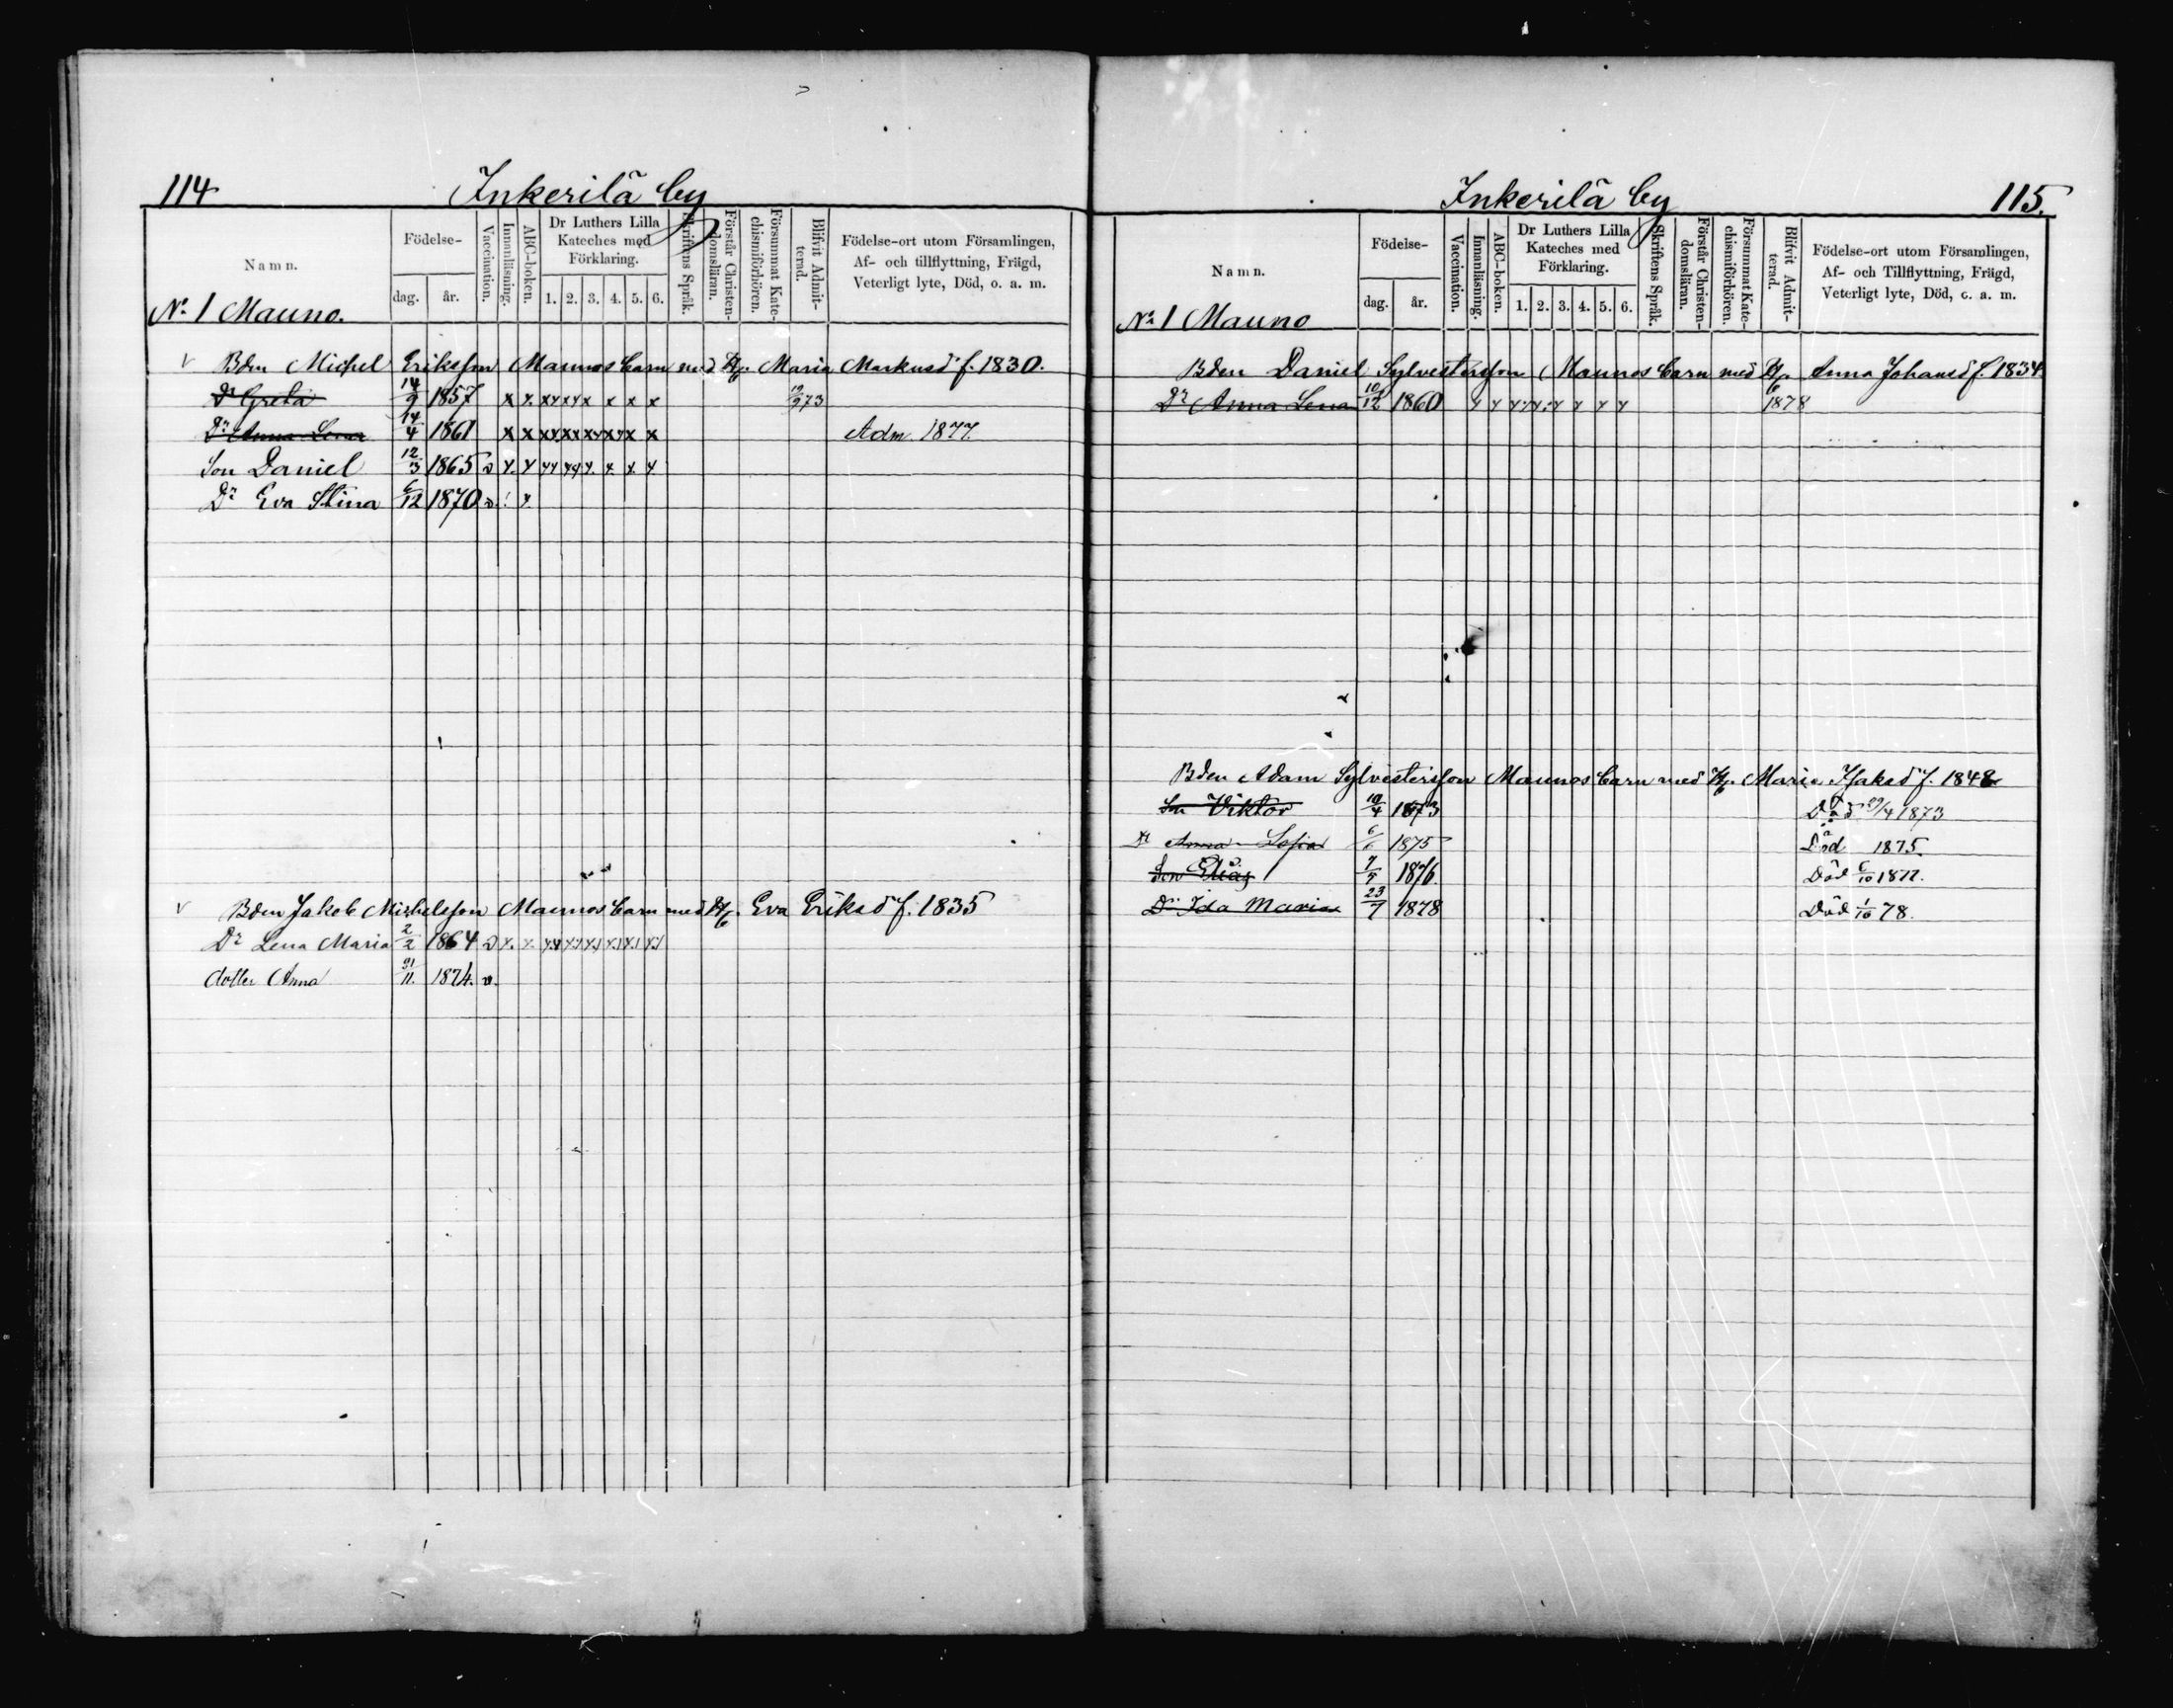 114 Inkerilä by
Namn. Födelse- dag. år. Vaccination. Innanläsning. ABC-boken. Dr Luthers Lilla Kateches med Förklaring. 1. 2. 3. 4. 5. 6. Skriftens Språk. Förstår Christendomsläran. Försummat Katechismiförhören. Blifvit Admitterad. Födelse-ort utom Församlingen, Af- och tillflyttning, Frägd, Veterligt lyte, Död, o. a. m.
No 1 Mauno.
Bden Michel Eriksson Maunos barn med H. Maria Markusd f. 1830.
Dr Greta 14/9 1857 x x xx xx x x x x 12/9 73
Dr Anna Lena 14/4 1861 x x xx xx xx xx x x Adm. 1877.
Son Daniel 12/3 1865 v x. x xx xx x. x. x. x
Dr Eva Stina 6/12 1870 v. ! x.
Bden Jakob Michelsson Maunos barn med H. Eva Eriksd f. 1835
Dr Lena Maria 2/2 1864 v x. x.
dotter Anna 11. 1874. v.
Inkerilä by 115.
Namn. Födelse- dag. år. Vaccination. Innanläsning. ABC-boken. Dr Luthers Lilla Kateches med Förklaring. 1. 2. 3. 4. 5. 6. Skriftens Språk. Förstår Christendomsläran. Försummat Katechismiförhören. Blifvit Admitterad. Födelse-ort utom Församlingen, Af- och Tillflyttning, Frägd, Veterligt lyte, Död, o. a. m.
No 1 Mauno
Bden Daniel Sylvestersson Maunos barn med H. Anna Johansd f. 1834
Dr Anna Lena 10/12 1860 x x x x x x x x 1878
Bden Adam Sylvestersson Maunos barn med H. Maria Isaksd f. 1848
Son Viktor 10/4 1873 Död 29/4 1873
Dr Anna Sofia 6/6 1875 Död 1875
Son Elias 7/9 1876. Död 6/10 1877.
Dr Ida Maria 23/7 1878 Död 1/10 78.